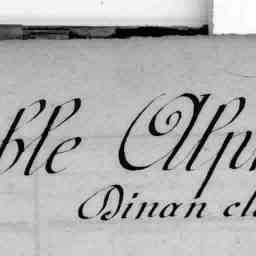 ble Alp
Dinan cl